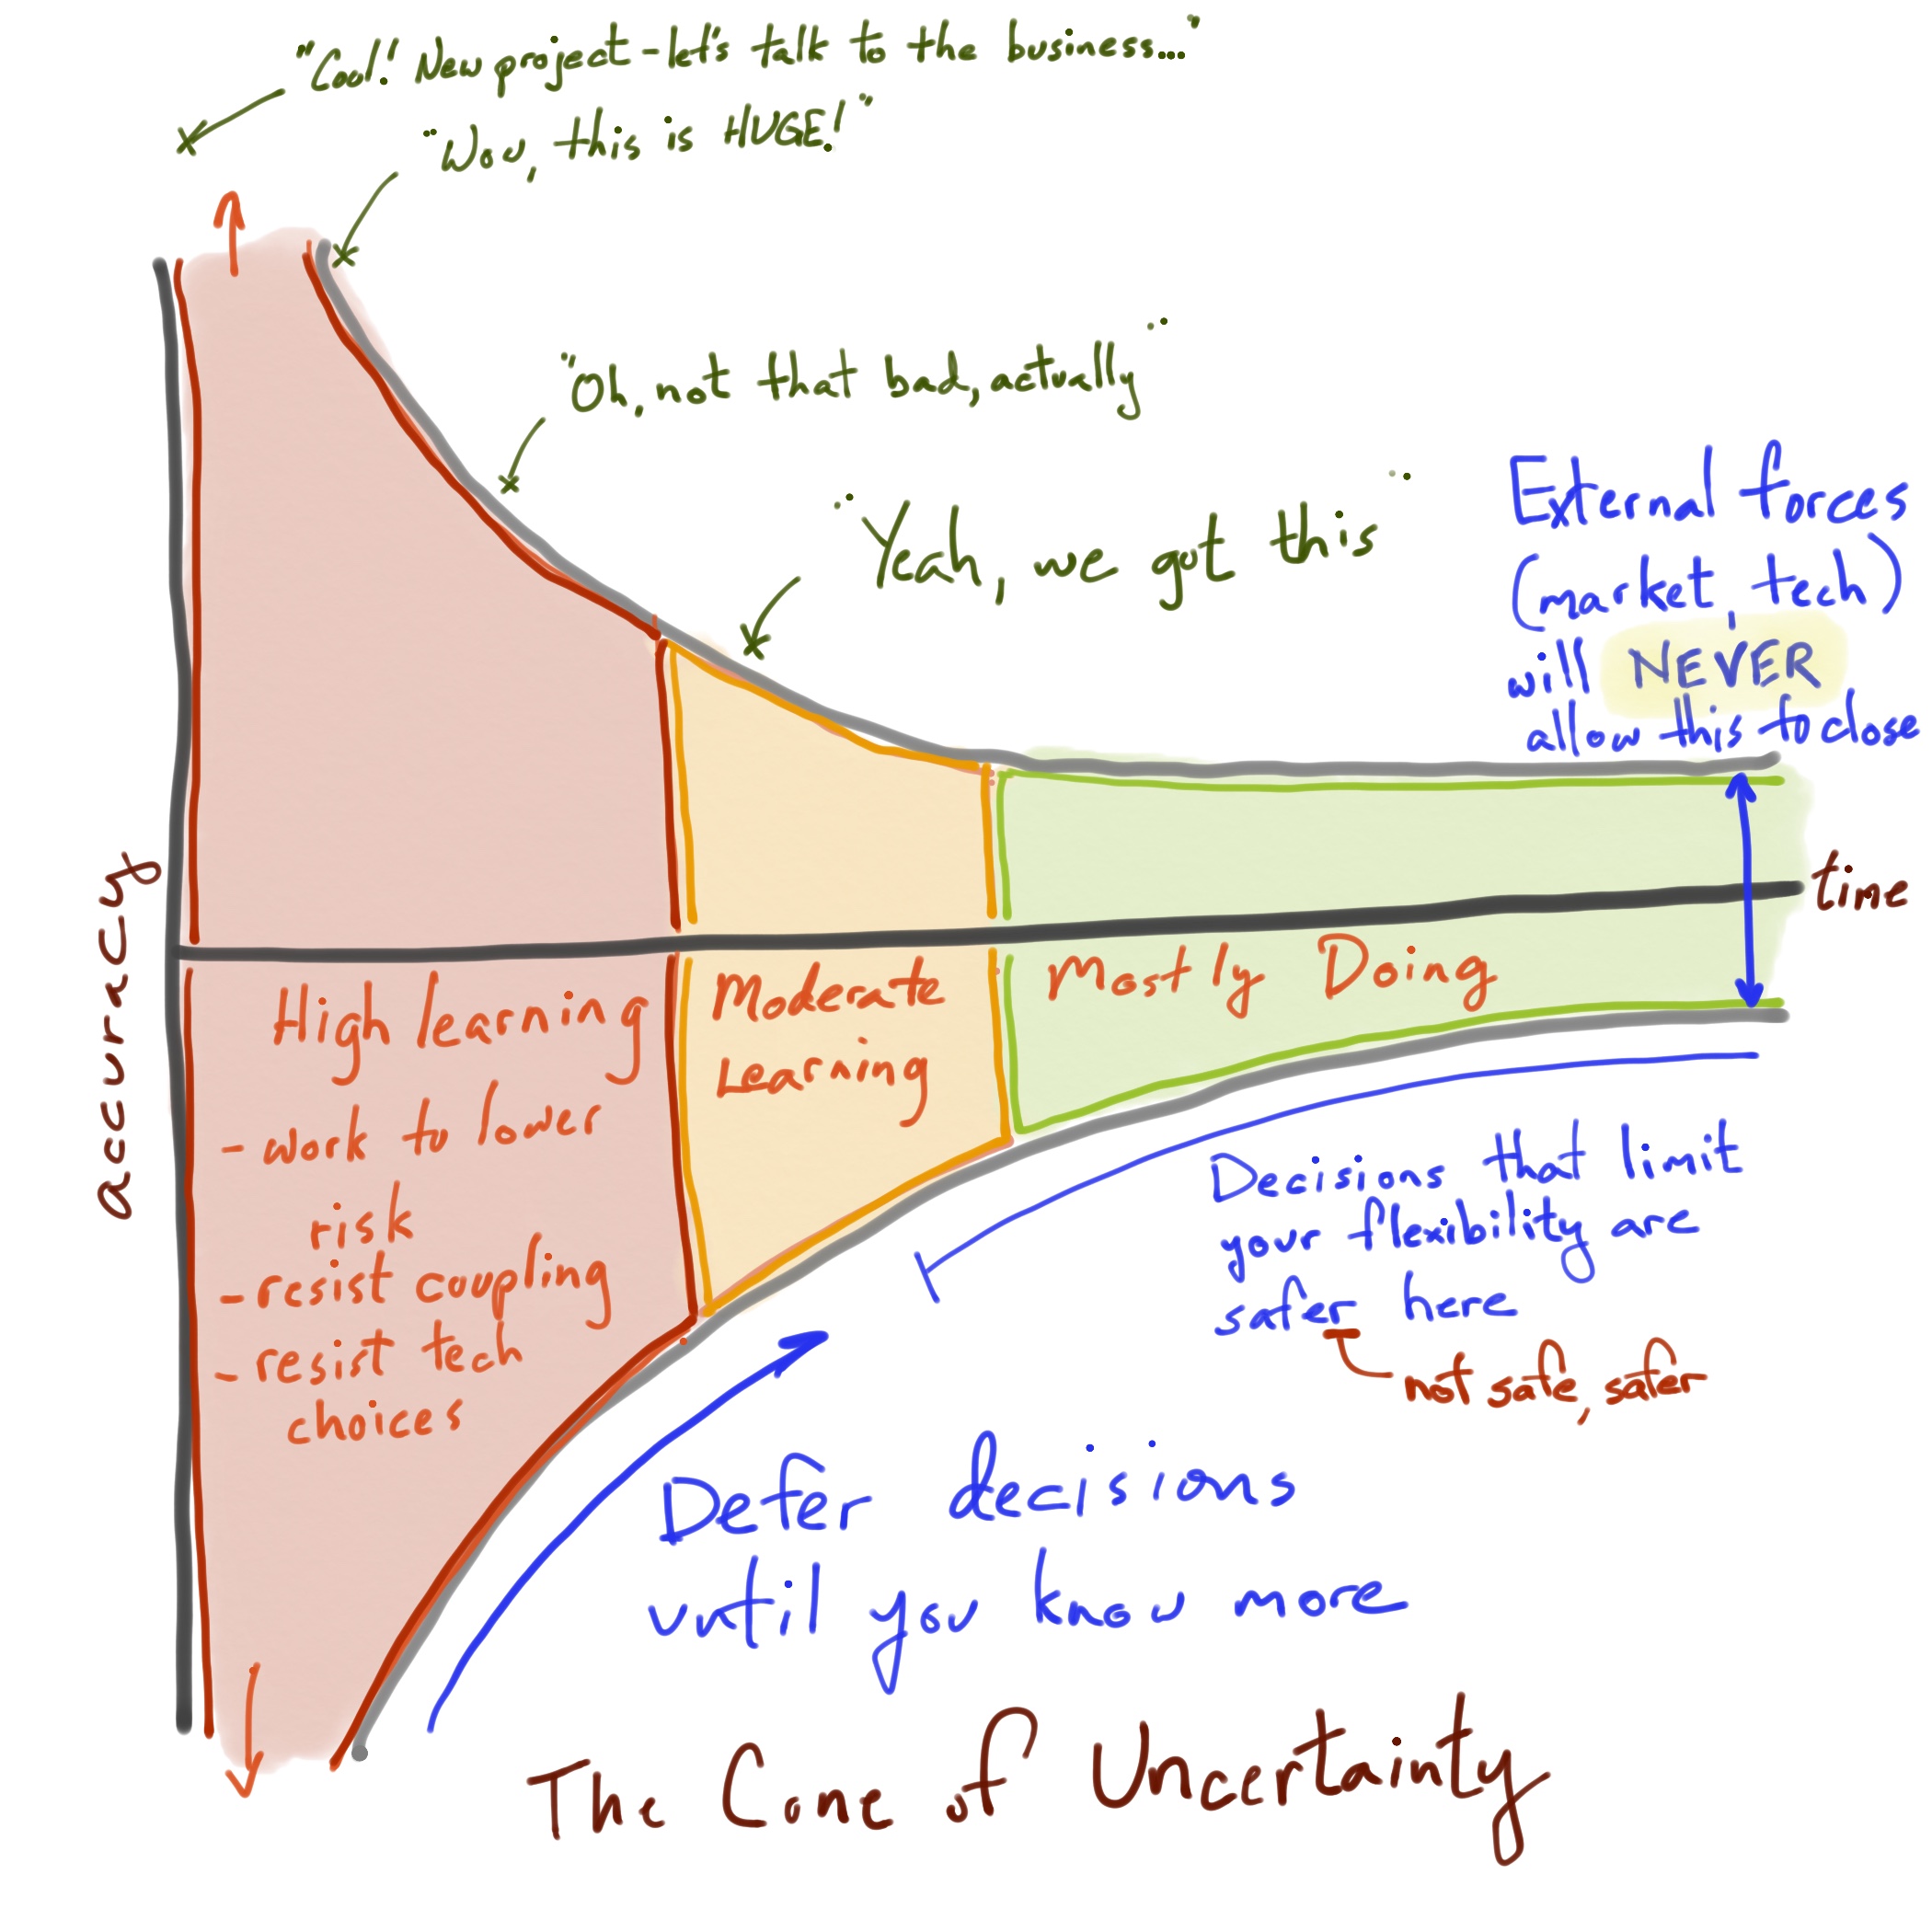 "Cool! New project - let's talk to the business..."
"Wow, this is HUGE!"
"Oh, not that bad, actually"
"Yeah, we got this"
External forces
(market, tech)
will NEVER
allow this to close
accuracy
time
High learning
- work to lower
risk
- resist coupling
- resist tech
choices
Moderate
Learning
Mostly Doing
Decisions that limit
your flexibility are
safer here
not safe, safer
Defer decisions
until you know more
The Cone of Uncertainty